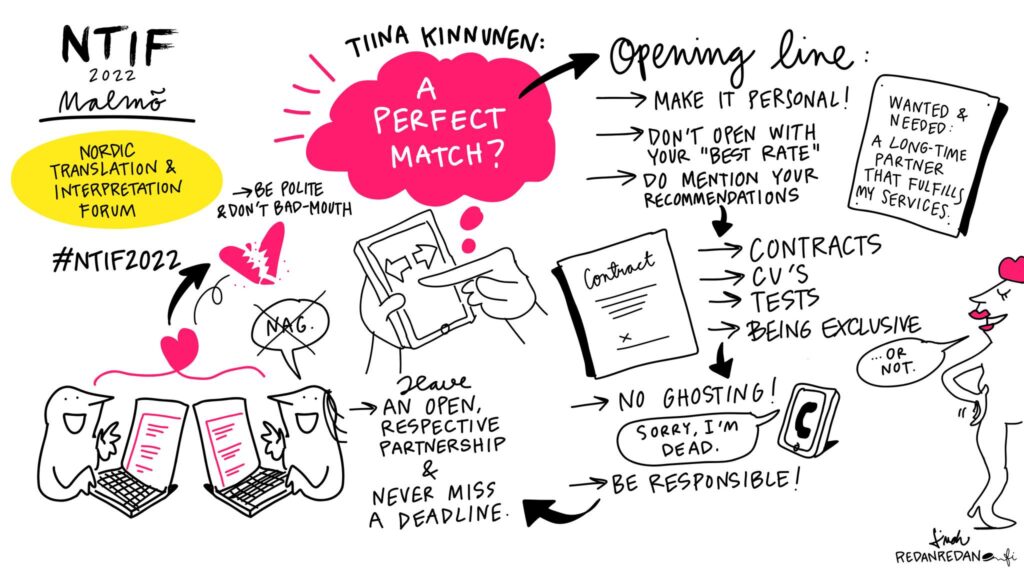 NTIF
2022
Malmö
NORDIC
TRANSLATION &
INTERPRETATION
FORUM
#NTIF2022
TIINA KINNUNEN:
A
PERFECT
MATCH?
Opening line:
→ MAKE IT PERSONAL!
→ DON'T OPEN WITH
YOUR "BEST RATE"
→ DO MENTION YOUR
RECOMMENDATIONS
WANTED &
NEEDED:
A LONG-TIME
PARTNER
THAT FULFILLS
MY SERVICES.
Contract
x
→ CONTRACTS
→ CV'S
→ TESTS
→ BEING EXCLUSIVE
...OR
NOT.
→ NO GHOSTING!
SORRY, I'M
DEAD.
→ BE RESPONSIBLE!
Have
→ AN OPEN,
RESPECTIVE
PARTNERSHIP
&
NEVER MISS
A DEADLINE.
NAG.
→ BE POLITE
& DON'T BAD-MOUTH
REDANREDAN